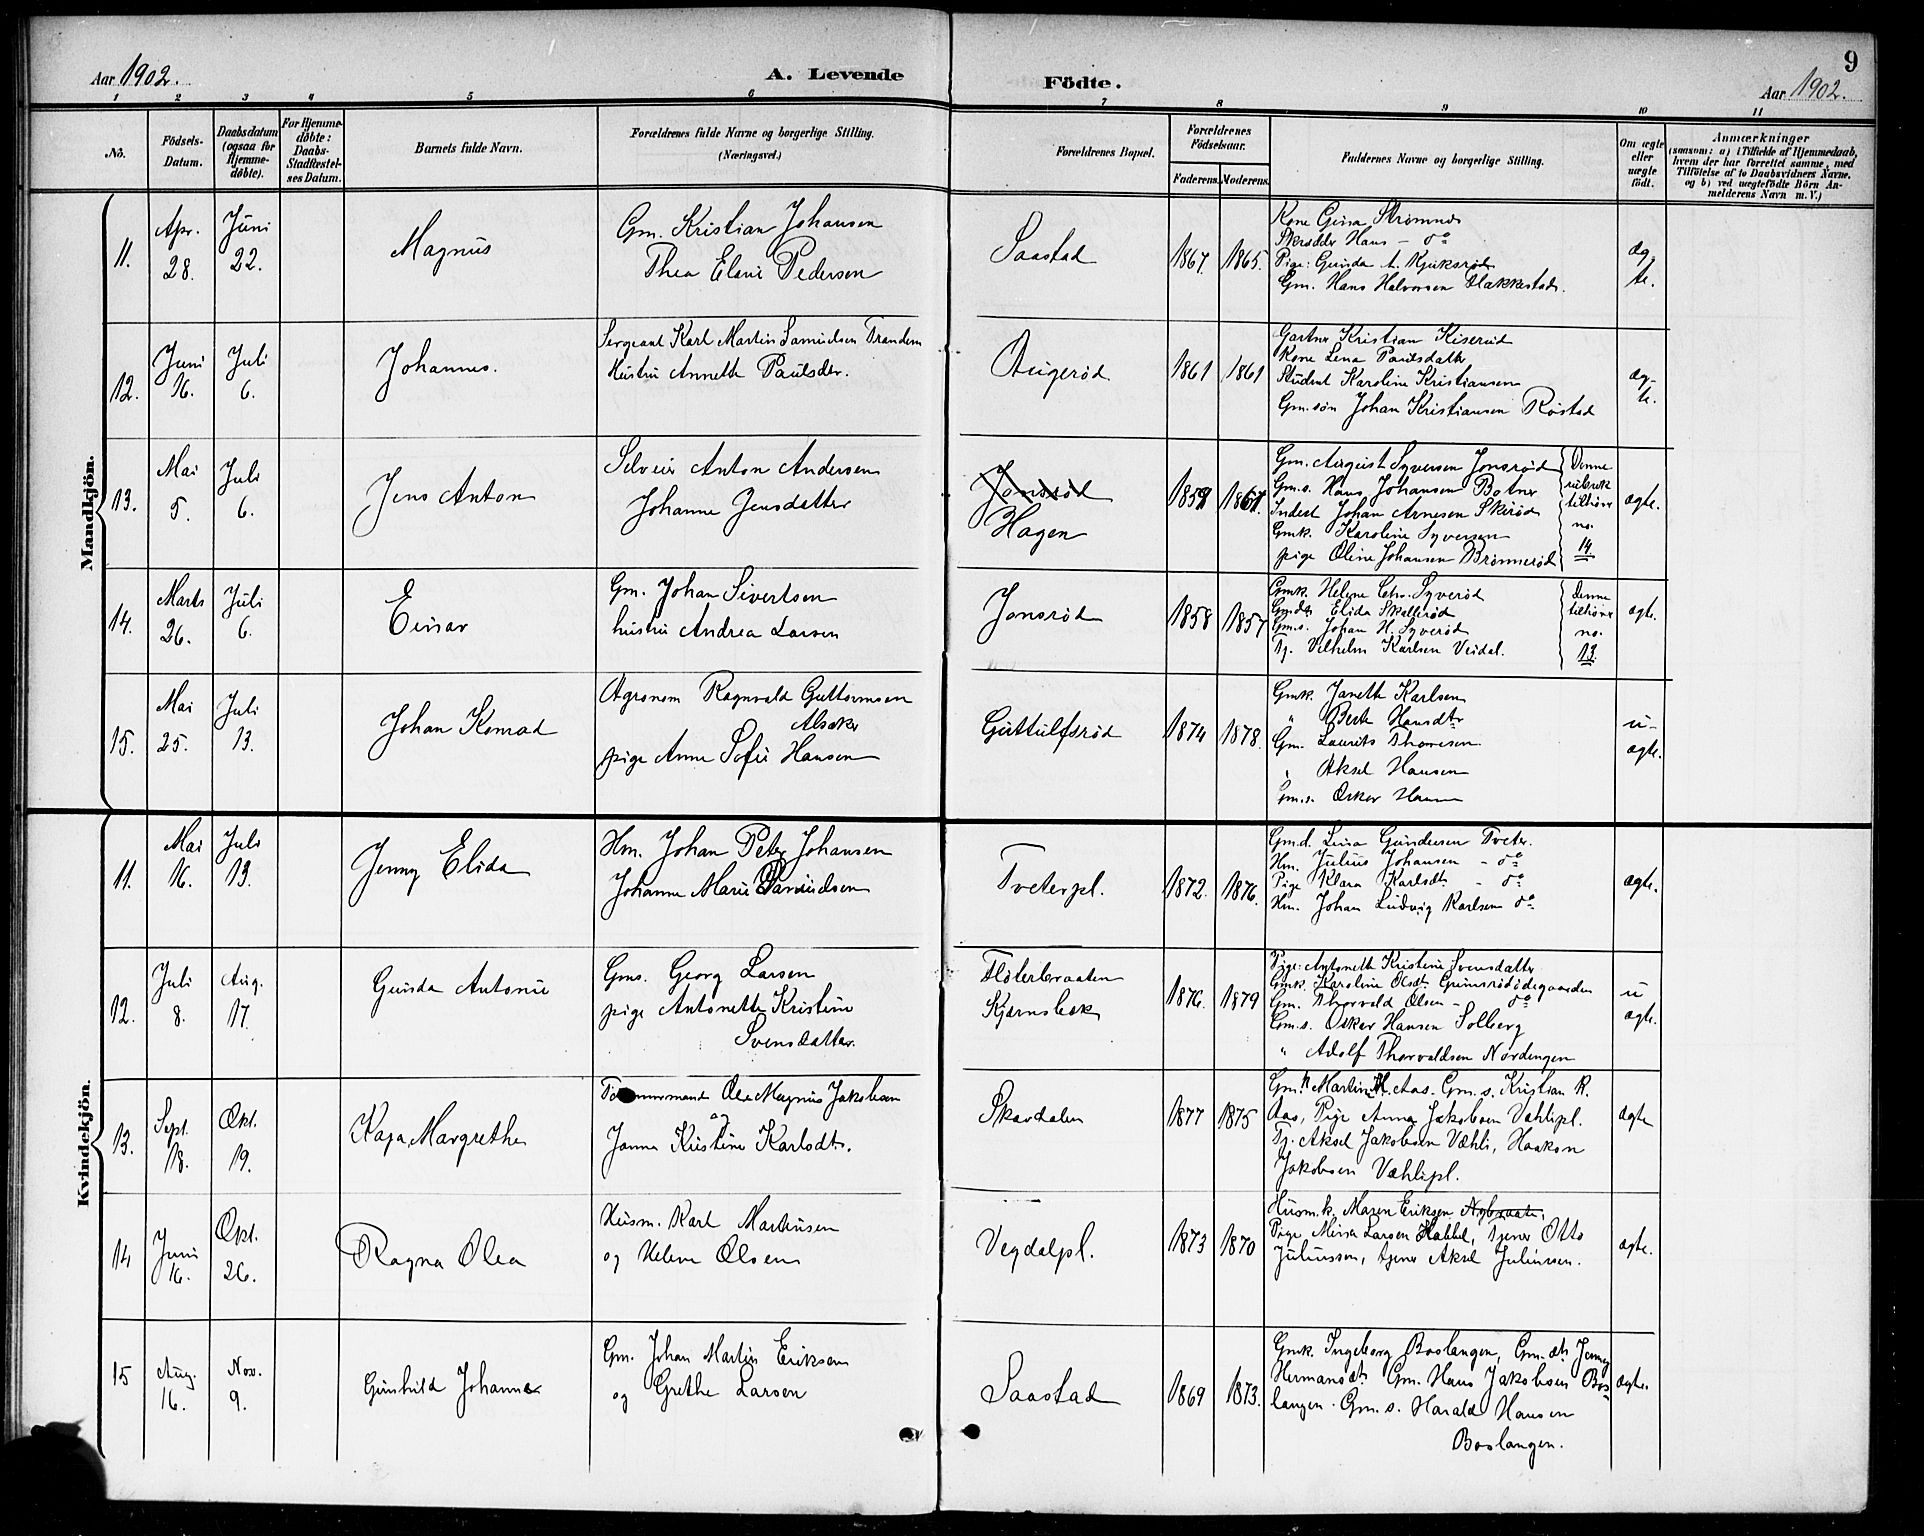 9
Aar 1902.
A. Levende
Födte.
Aar 1902.
1 2 3 4 5 6 7 8 9 10 11
No.
Födsels-
Datum.
Daabsdatum
(ogsaa for
Hjemme-
döbte).
For Hjemme-
döbte:
Daabs-
Stadfæstel-
ses Datum.
Barnets fulde Navn.
Forældrenes fulde Navne og borgerlige Stilling.
(Næringsvei.)
Forældrenes Bopæl.
Forældrenes
Födselsaar.
Faderens. Moderens.
Faddernes Navne og borgerlige Stilling.
Om ægte
eller
uægte
födt.
Anmærkninger
(saasom: a) i Tilfælde af Hjemmedaab,
hvem der har forrettet samme, med
Tilföielse af to Daabsvidners Navne,
og b) ved uægtefödte Börn An-
melderens Navn m. V.)
Mandkjön.
11.
Apr.
28.
Juni
22.
Magnus
Gm. Kristian Johansen
Thea Eline Pedersen
Saastad
1867. 1865.
Kone Gina Strømnes
Skrædder Hans – do
Pige: Gunda A. Kjuksrød
Gm. Hans Halvorsen Hakkestad.
æg-
te.
12.
Juni
16.
Juli
6.
Johannes.
Sergeant Karl Martin Samuelsen Trandem
Hustru Annette Paulsdtr.
Augerød
1861 1861
Gartner Kristian Kiserud
Kone Lena Paulsdatter
Student Karoline Kristiansen
Gm.søn Johan Kristiansen Røstad
æg-
te.
13.
Mai
5.
Juli
6.
Jens Anton
Selveier Anton Andersen
Johanne Jensdatter
Jonsrød
Hagen
1859 1861.
Gm. August Syversen Jonsrød
Gm.s. Hans Johansen Botner
Inderst Johan Arnesen Skirød
Gmk. Karoline Syversen
pige Oline Johansen Brønnerød
Denne
rubrik
tilhører
no.
14
ægte.
14.
Marts
26.
Juli
6.
Einar
Gm. Johan Sivertsen
hustru Andrea Larsen
Jonsrød
1858 1857
Gmk. Helene Chr. Syverød
Gm.dtr. Elida Skallerød
Gm.s. Johan H. Syverød
Tj. Vilhelm Karlsen Veidal.
Denne
tilhører
no.
13.
ægte.
15.
Mai
25.
Juli
13.
Johan Konrad
Agronom Ragnvald Guttormsen
Alsaker
pige Anne Sofie Hansen
Guttulfsrød
1874 1878.
Gmk. Janette Karlsen
" Berte Hansdtr
Gm. Laurits Thoresen
" Aksel Hansen
Gm.s. Oskar Hansen
u-
ægte.
Kvindekjön.
11.
Mai
16.
Juli
13.
Jenny Elida
Hm. Johan Peter Johansen
Johanne Marie Davidsen
Tveterpl.
1872. 1876.
Gm.d. Lina Gundersen Tveter.
Hm. Julius Johansen – do
Pige Klara Karlsdtr – do
Hm. Johan Ludvig Karlsen do
ægte.
12.
Juli
8.
Aug.
17.
Gunda Antonie
Gms. Georg Larsen
pige Antonette Kristine
Svensdatter.
Fløterbraaten
Kjærnsbæk
1876. 1879
Pige: Antonette Kristine Svensdatter
Gmk. Karoline Olsdt. Grimsrødødegaarden
Gm. Thorvald Olsen – do
Gm.s. Oskar Hansen Solberg
" Adolf Thorvaldsen Nordengen
u
ægte.
13.
Sept.
18.
Okt.
19.
Kaja Margrethe
Tømmermand Ole Magnus Jakobsen
og
Janna Kristine Karlsdtr.
Skavdalen
1877 1875
Gm. Martin H. Aas. Gm.s. Kristian R.
Aas, Pige Anna Jakobsen Væhlipl.
Tj. Aksel Jakobsen Væhli, Haakon
Jakobsen Væhlipl.
ægte
14
Juni
16.
Okt.
26.
Ragna Olea
Husm. Karl Martinsen
og Helene Olsen
Vegdalpl.
1873 1870
Husm.k. Maren Eriksen
Pige Mina Larsen Habbel, Tjener Otto
Juliussen, tjener Aksel Juliussen.
ægte.
15
Aug.
16.
Nov.
9.
Gunhild Johanne
Gm. Johan Martin Eriksen
og Grethe Larsen
Saastad
1869 1873.
Gmk. Ingeborg Boslangen, Gm.dt. Jenny
Hermansdt. Gm. Hans Jakobsen Bos-
langen. Gm.s. Harald Hansen
Boslangen.
ægte.